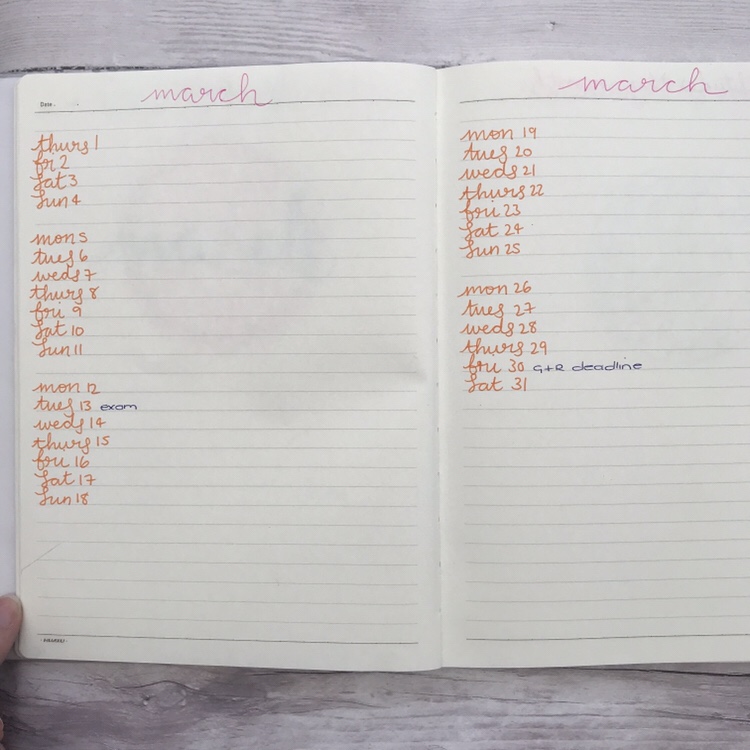 Date.
march
thurs 1
fri 2
sat 3
sun 4
mon 5
tues 6
weds 7
thurs 8
fri 9
sat 10
sun 11
mon 12
tues 13 exam
weds 14
thurs 15
fri 16
sat 17
sun 18
march
mon 19
tues 20
weds 21
thurs 22
fri 23
sat 24
sun 25
mon 26
tues 27
weds 28
thurs 29
fri 30 G+R deadline
sat 31